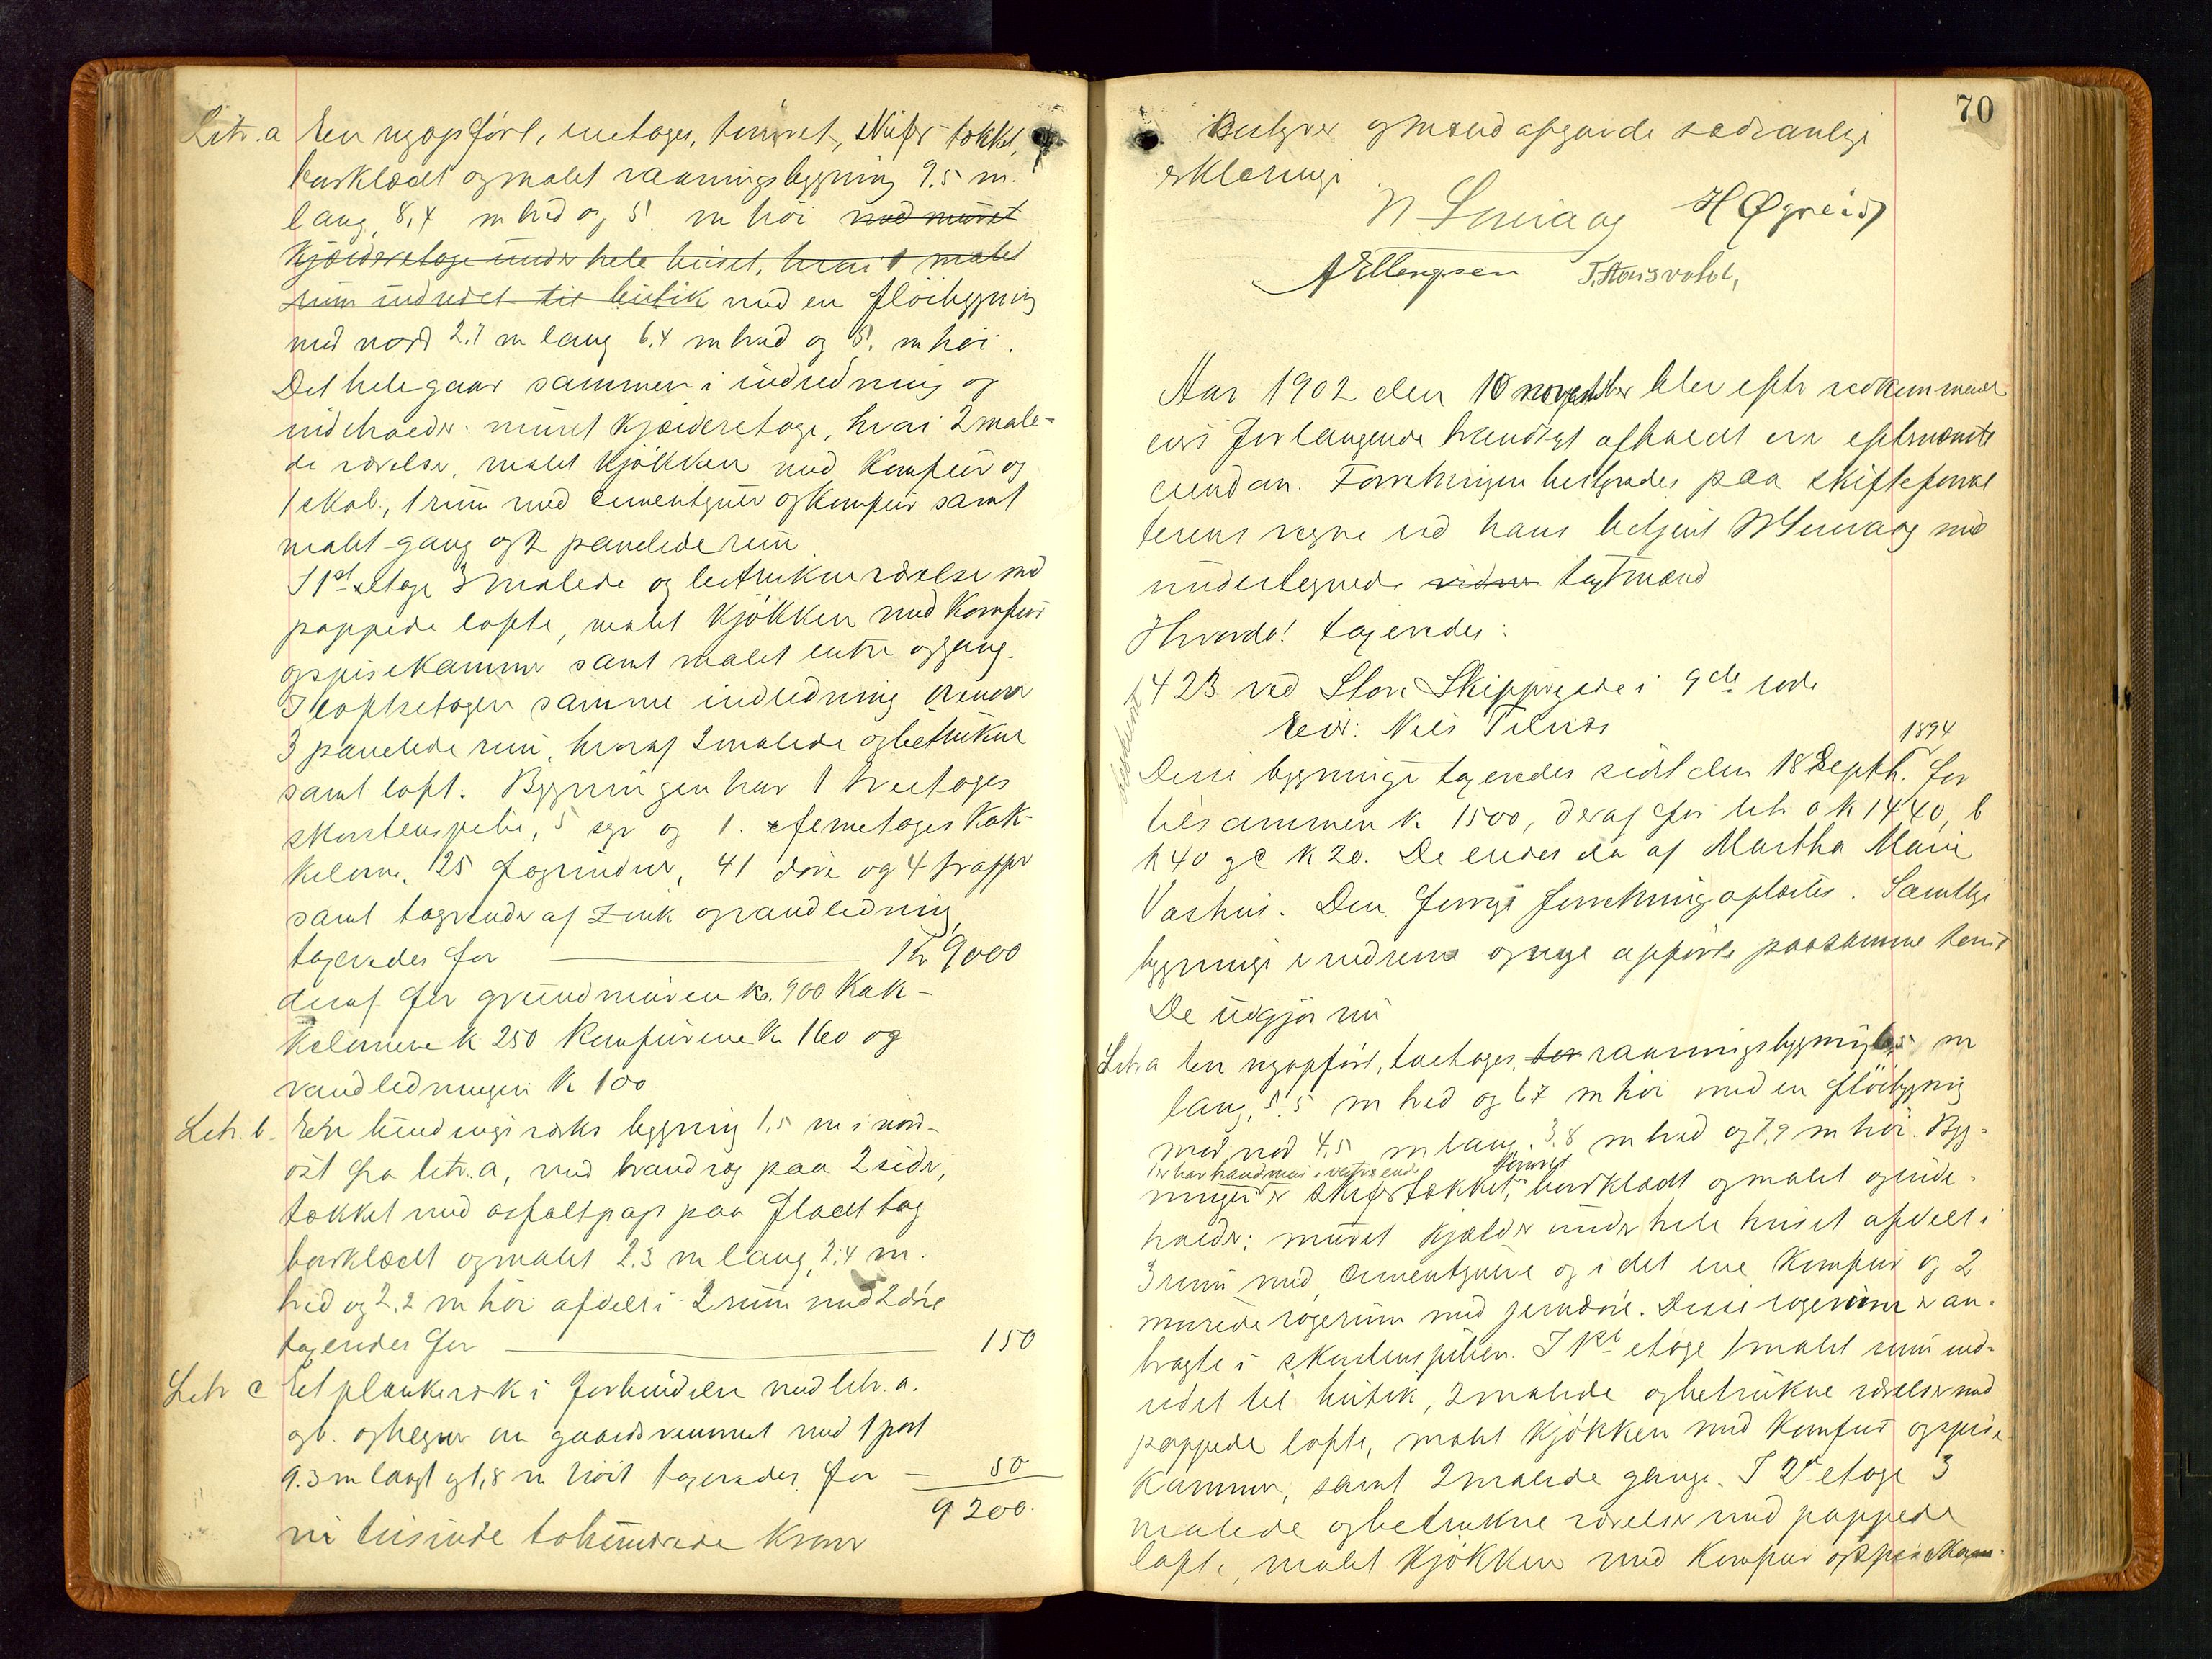 Litr. a En nyopført, enetages, tømret, skifertækket,
bordklædt og malet vaaningsbygning 9.5 m.
lang, 8,4 m bred og 5. m høi med muret
kjælderetage under hele huset, hvori 1 malet
rum indredet til butik med en fløibygning
mod nord 2.7 m lang 6.4 m bred og 5. m høi.
Det hele gaar sammen i indredning og
indeholder: muret kjælderetage, hvori 2 male-
de værelser, malet kjøkken med komfur og
1 skab., 1 rum med cementgulv og komfur samt
malet gang og 2 panelede rum.
I 1st etage 3 malede og betrukne værelser med
pappede lofte, malet kjøkken med komfur
og spisekammer samt malet entre og gang.
I loftsetagen samme indredning
3 panelede rum, hvoraf 2 malede og betrukne
samt loft. Bygningen har 1 treetages
skorstenspibe, 5 og 1. femetages kak-
kelovne, 25 fag vinduer, 41 døre og 4 trapper
samt tagrender af zink og vandledning,
taxeredes for Kr 9000
deraf for grundmuren kr. 900 kak-
kelovnene k 250 komfurene k 160 og
vandledningen k 100
Litr. b. En bindingsværks bygning 1,5 m i nord-
øst fra litr. a, med brandvæg paa 2 sider,
tækket med asfaltpap paa fladt tag
bordklædt og malet 2.3 m lang, 2.4 m.
bred og 2.2 m høi afdelt i 2 rum med 2 døre
taxeredes for 150
Litr c Et plankeværk i forbindelse med litr. a.
og b. og hegner om gaardsrummet med 1 port
9.3 m langt og 1,8 m høit taxeredes for – 50
9200.
ni tusinde tohundrede kroner
70
Bestyrer og mænd afgavde sædvanlige
erklæringer
N. Sunaag H Øgreid
A Ellingsen T. Hausvold,
Aar 1902 den 10 november blev efter vedkommend-
ers forlangende branntaxt afholdt over efternævnte
eiendom. Forretningen bestyredes paa skifteforval
terens vegne ved hans betjent N Sunaag med
undertegnede vidner taxtmænd
Hvorda! taxeredes:
423 ved Store Skippergade i 9de rode
Eier: Nils Tilnes
Disse bygninger taxeredes sidst den 18 Septbr. 1894 for
tilsammen k 1500, deraf for litr a k 1440, b
k 40 og c k 20. De eiedes da af Martha Marie
Vashus. Den forrige forretning oplæstes. Samtlige
bygninger er nedrevne og nye opførte paa samme tomt
De udgjør nu
Litr a En nyopført, toetages, tøm vaaningsbygning 6,5 m
lang, 5.5 m bred og 6.7 m høi med en fløibygning
mod nord 4,5 m lang, 3,8 m bred og 7,9 m høi. Byg-
har brandmur i vestre ende tømret
ningen er skifertækket, bordklædt og malet og inde-
holder: muret kjælder under hele huset afdelt i
3 rum med cementgulve og i det ene komfur og 2
murede røgerum med jerndøre. Disse røgerum er an-
bragte i skorstenspiben. I 1ste etage 1 malet rum ind-
redet til butik, 2 malede og betrukne værelser med
pappede lofte, malet kjøkken med komfur og spise-
kammer, samt 2 malede gange. I 2d etage 3
malede og betrukne værelser med pappede
lofte, malet kjøkken med komfur og spisekam-